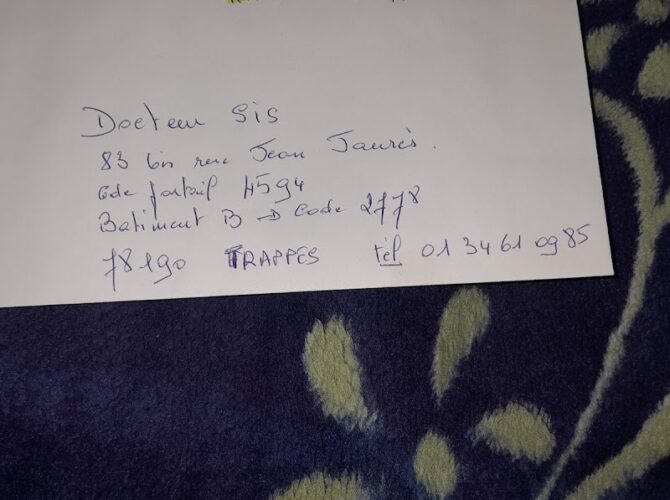 Docteur SiS
83 bis rue Jean Jaurès.
Code portail 4594
Batiment B → Code 2778
78190 TRAPPES tél 01 34 61 09 85